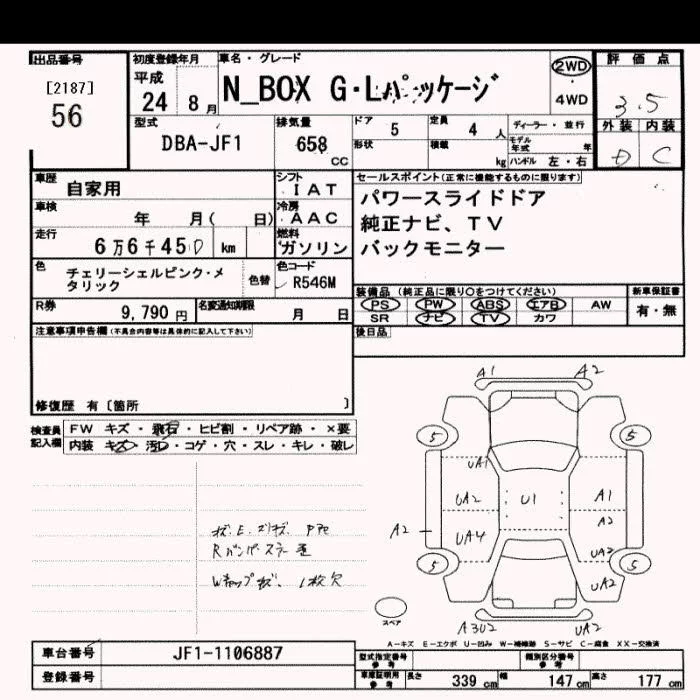 出品番号
[2187]
56
初度登録年月
平成
24 8月
車名・グレード
N_BOX G・Lパッケージ
2WD
4WD
評価点
3.5
外装 内装
D C
型式
DBA-JF1
排気量
658
CC
ドア 5
定員 4人
形状
積載 kg
ディーラー・並行
モデル年式 年
ハンドル 左・右
車歴
自家用
シフト
IAT
セールスポイント(正常に機能するものに限ります)
パワースライドドア
純正ナビ、TV
バックモニター
車検
年 月( 日)
冷房
AAC
走行
6万6千450 km
燃料
ガソリン
色
チェリーシェルピンク・メ
タリック
色替
色コード
R546M
装備品(純正品に限り○をつけてください)
新車保証書
PS PW ABS エアB AW
SR ナビ TV カワ
有・無
R券
9,790円
名変通知期限
月 日
注意事項申告欄(不具合内容等は具体的に記入して下さい)
後日品
修復歴 有〔箇所 〕
検査員
記入欄
FW キズ・飛石・ヒビ割・リペア跡・×要
内装 キズ・汚レ・コゲ・穴・スレ・キレ・破レ
A1 A2
5 5
UA1
UA2 U1 A1
A2
A2 UA4 UA2
5 5
UA2
A3U2 UA2
スペア
Rバンパーステー
Wキャップキズ、1枚欠
A-キズ E-エクボ U-凹み W-補修跡 S-サビ C-腐食 XX-交換済
車台番号
JF1-1106887
登録番号
型式指定番号
参考
類別区分番号
参考
車庫証明用
参考
長さ 339cm 幅 147cm 高さ 177cm